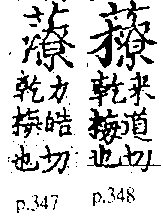 䕩
力皓切
乾梅也
p.347
来道切
乾梅也
p.348